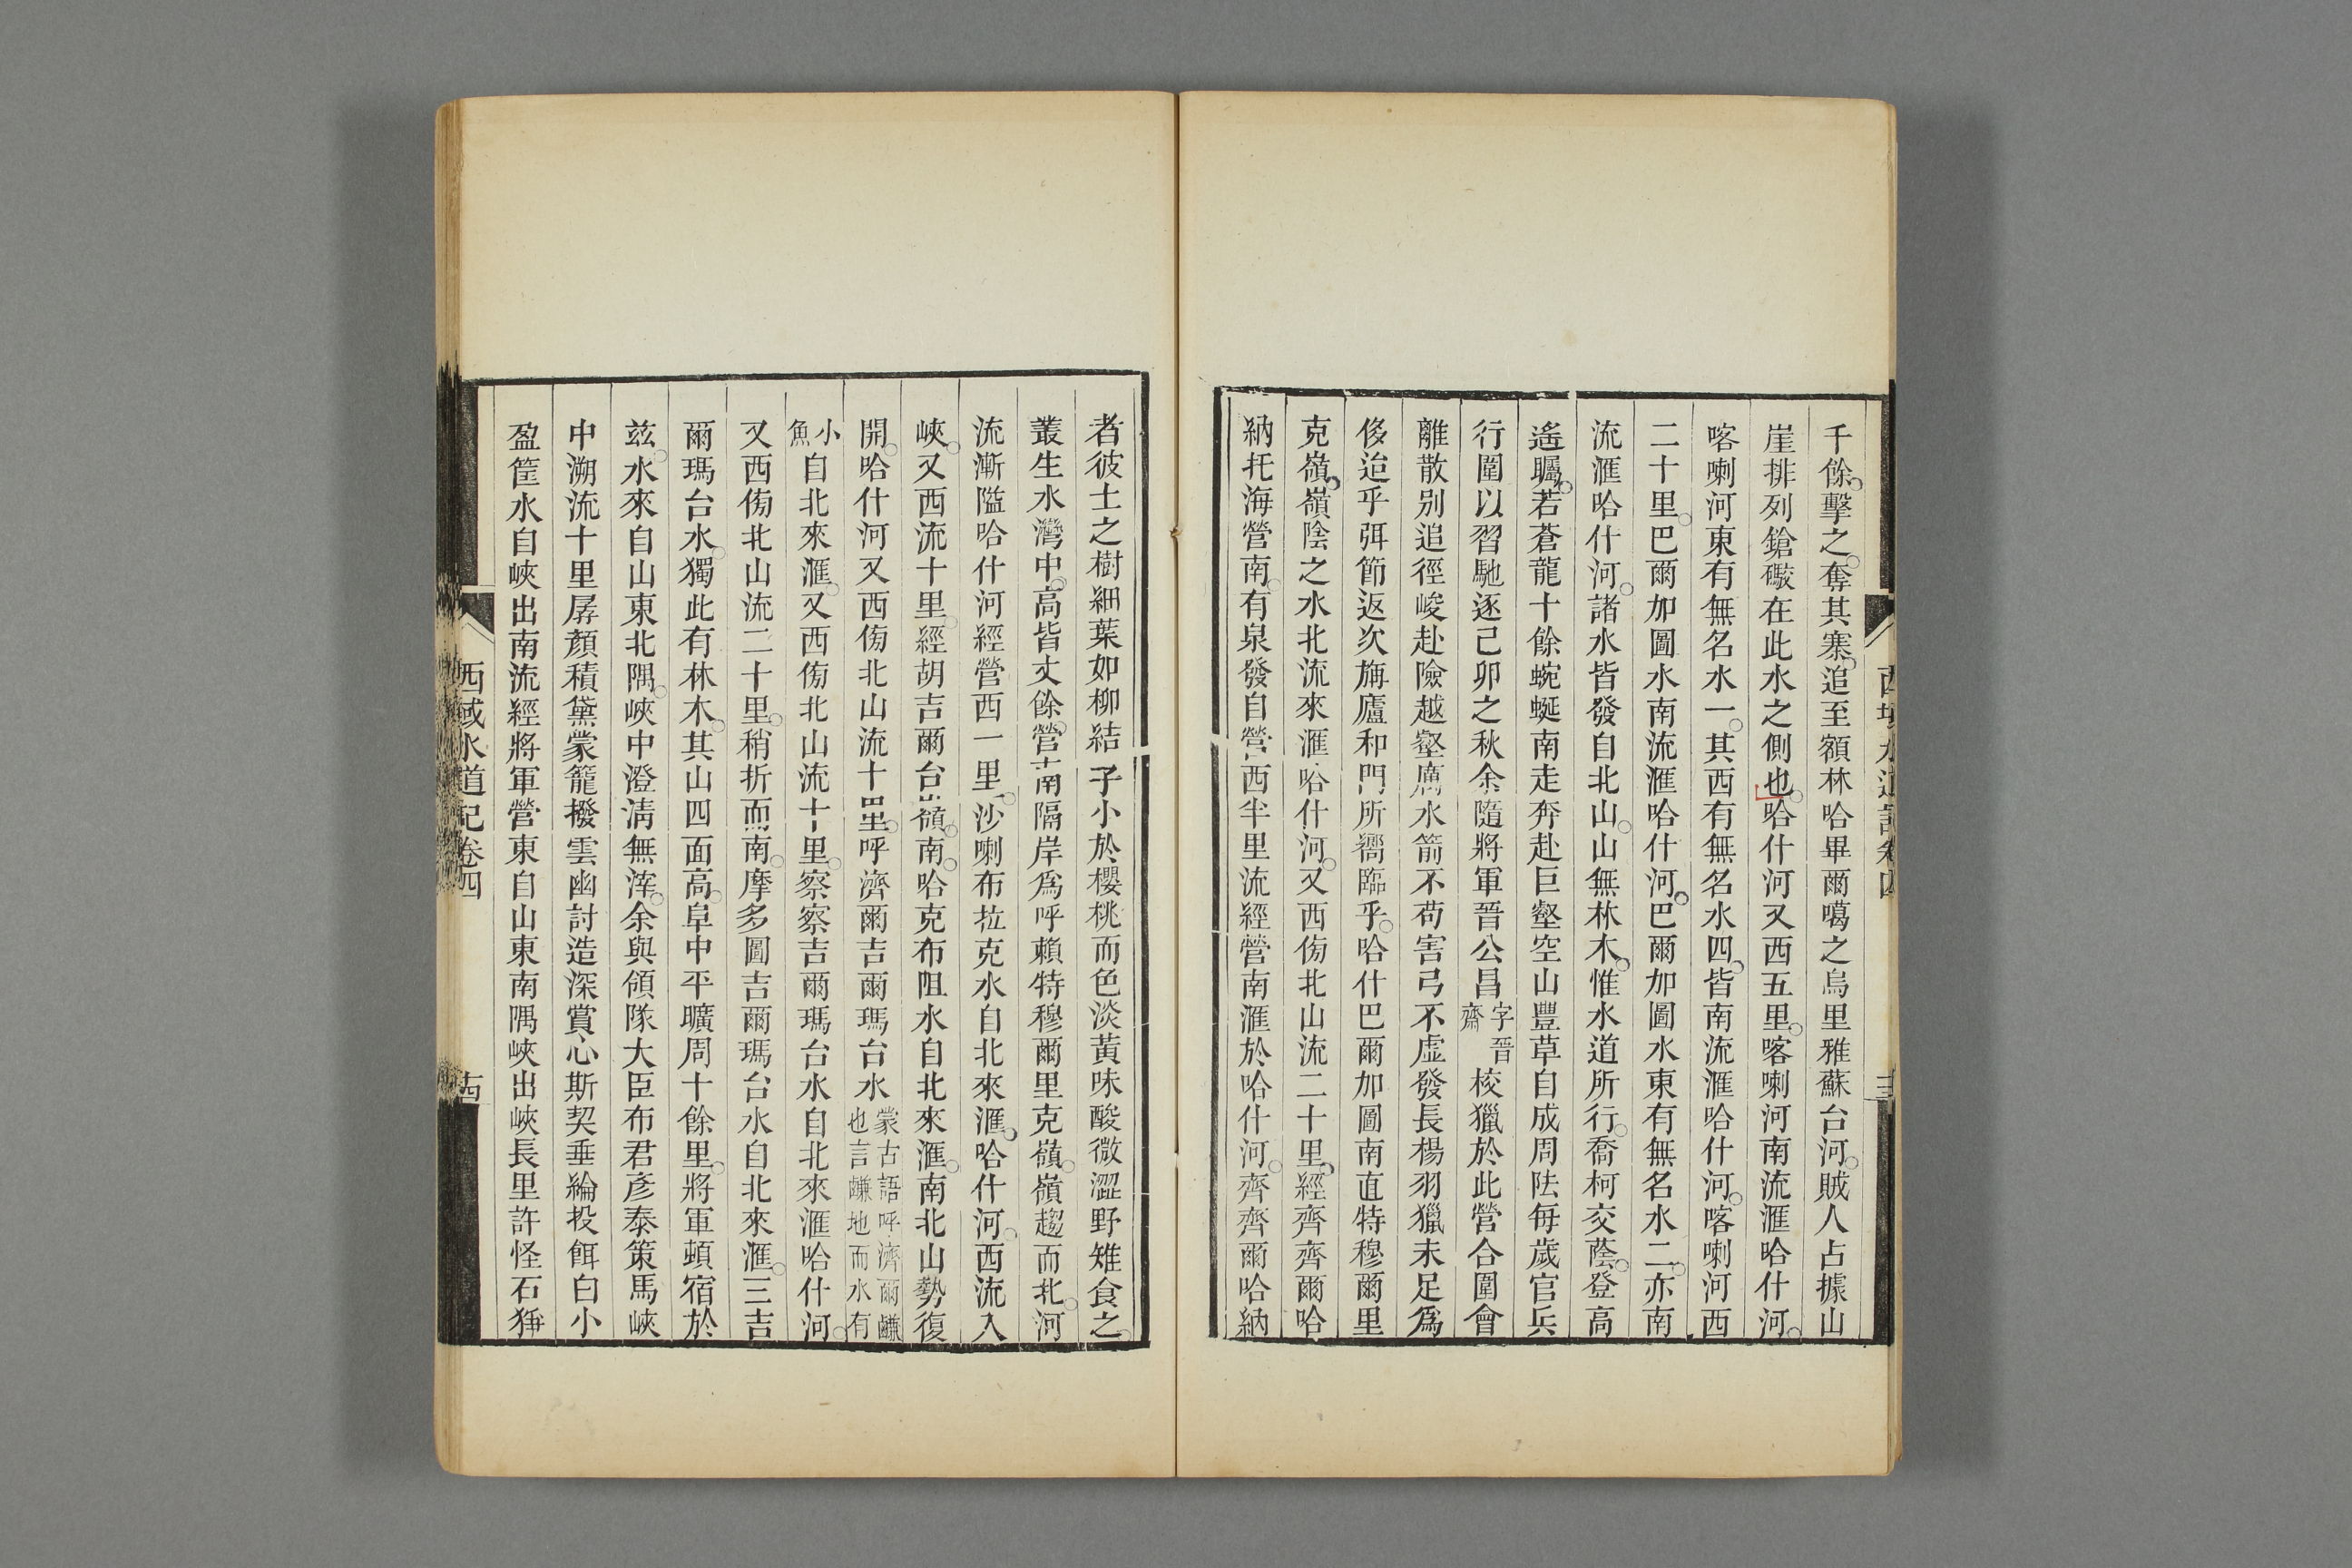 千餘擊之奪其寨追至額林哈畢爾噶之烏里雅蘇台河賊人占據山
崖排列鎗礮在此水之側也哈什河又西五里喀喇河南流滙哈什河
喀喇河東有無名水一其西有無名水四皆南流滙哈什河喀喇河西
二十里巴爾加圖水南流滙哈什河巴爾加圖水東有無名水二亦南
流滙哈什河諸水皆發自北山山無林木惟水道所行喬柯交蔭登高
遙矚若蒼龍十餘蜿蜒南走奔赴巨壑空山豐草自成周阹每歲官兵
行圍以習馳逐己卯之秋余隨將軍晉公昌字晉齋校獵於此營合圍會
離散別追徑峻赴險越壑厲水箭不苟害弓不虛發長楊羽獵未足為
侈迨乎弭節返次旃廬和門所嚮臨乎哈什巴爾加圖南直特穆爾里
克嶺嶺陰之水北流來滙哈什河又西傍北山流二十里經齊齊爾哈
納托海營南有泉發自營西半里流經營南滙於哈什河齊齊爾哈納
西域水道記卷四
者彼土之樹細葉如柳結子小於櫻桃而色淡黃味酸微澀野雉食之
叢生水灣中高皆丈餘營南隔岸為呼賴特穆爾里克嶺嶺趨而北河
流漸隘哈什河經營西一里沙喇布拉克水自北來滙哈什河西流入
峽又西流十里經胡吉爾台嶺南哈克布阻水自北來滙南北山勢復
開哈什河又西傍北山流十里呼濟爾吉爾瑪台水蒙古語呼濟爾鹻也言鹻地而水有
小魚自北來滙又西傍北山流十里察察吉爾瑪台水自北來滙哈什河
又西傍北山流二十里稍折而南摩多圖吉爾瑪台水自北來滙三吉
爾瑪台水獨此有林木其山四面高阜中平曠周十餘里將軍頓宿於
茲水來自山東北隅峽中澄清無滓余與領隊大臣布君彥泰策馬峽
中溯流十里孱顏積黛蒙籠撥雲幽討造深賞心斯契垂綸投餌白小
盈筐水自峽出南流經將軍營東自山東南隅峽出峽長里許怪石猙
西域水道記卷四
十四